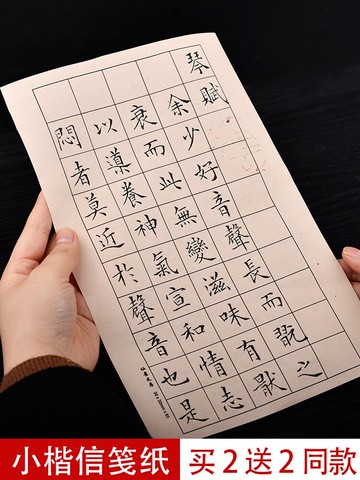 琴賦
余少好音聲長而翫之
衰而此無變滋味有猒
以導養神氣宣和情志
悶者莫近於聲音也是
小楷信笺纸
买2送2同款